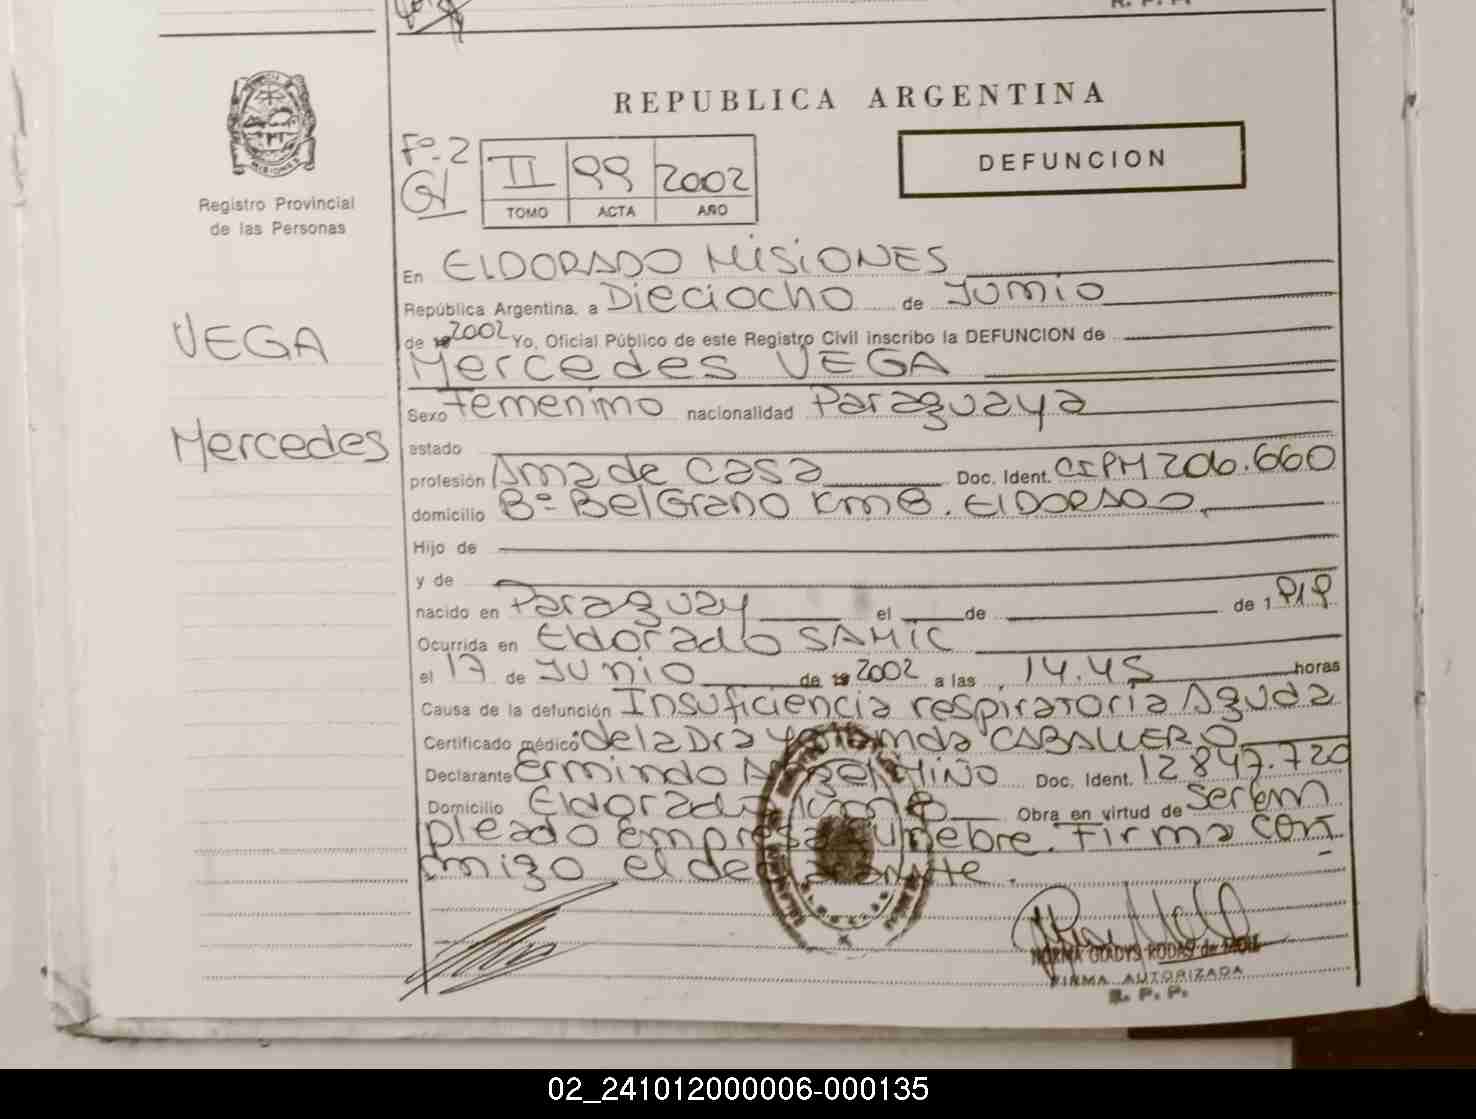 R. P. P.
REPUBLICA ARGENTINA
Fº-2
II 99 2002
TOMO ACTA AÑO
DEFUNCION
Registro Provincial
de las Personas
VEGA
Mercedes
En ELDORADO MISIONES
República Argentina, a Dieciocho de Junio
de 19 2002 Yo, Oficial Público de este Registro Civil inscribo la DEFUNCION de
Mercedes VEGA
Sexo Femenino nacionalidad Paraguaya
estado
profesión Ama de Casa Doc. Ident. CIPM 206.660
domicilio Bº BelGrano Km 8. ElDORADO
Hijo de
y de
nacido en Paraguay el de de 1 919
Ocurrida en Eldorado SAMIC
el 17 de Junio de 19 2002 a las 14.45 horas
Causa de la defunción Insuficiencia respiratoria Aguda
Certificado médico de la Dra Yolanda CABALLERO
Declarante Ermindo Angel MIÑO Doc. Ident. 12847.720
Domicilio Eldorado Km 8 Obra en virtud de ser em
pleado empresa Funebre. Firma con
migo el declarante.
NORMA GLADYS RODAS de MOLL
FIRMA AUTORIZADA
R. P. P.
02_241012000006-000135